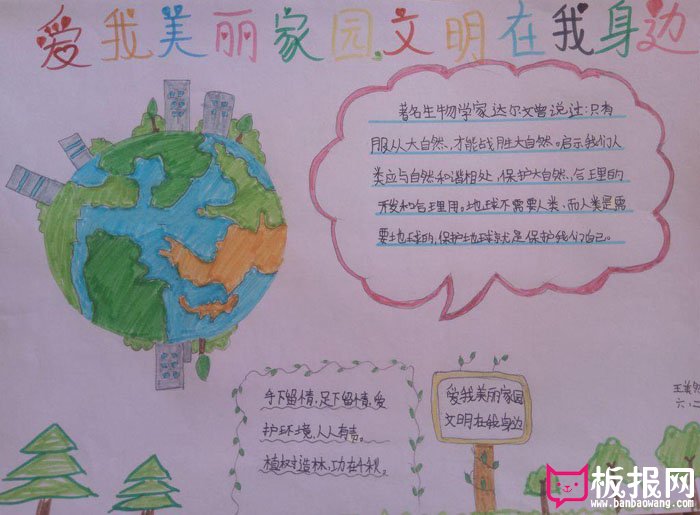 爱我美丽家园,文明在我身边
著名生物学家达尔文曾说过:只有
服从大自然,才能战胜大自然。启示我们人
类应与自然和谐相处,保护大自然,合理的
开发和合理用。地球不需要人类,而人类是需
要地球的,保护地球就是保护我们自己。
手下留情,足下留情,爱
护环境,人人有责。
植树造林,功在千秋。
爱我美丽家园
文明在我身边
王美
六.二
板报网
www.banbaowang.com